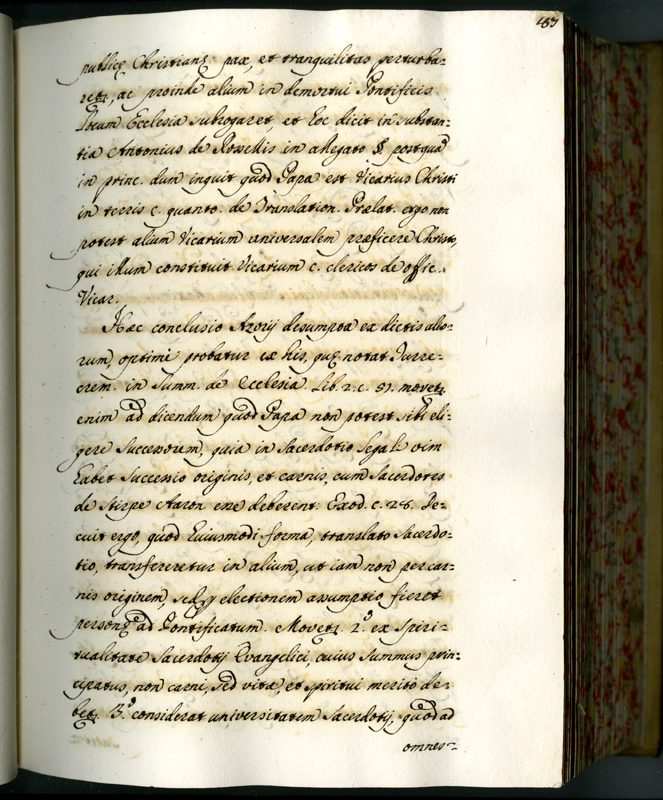 183
publicę Christianę pax, et tranquilitas perturba-
retr, ac proinde alium in demortui Pontificis
locum Ecclesia subrogaret, et hoc dicit in substan-
tia Antonius de Rosellis in allegato §. postquã
in princ. dum inquit quod Papa est Vicarius Christi
in terris c. quanto. de Translation. Prælat. ergo non
potest alium Vicarium universalem præficere Christo,
qui illum constituit Vicarium c. clericos de offic.
Vicar.
Hæc conclusio Azorij desumpta ex dictis alio-
rum, optimè probatur ex his, quę notat Turre-
crem. in Summ. de Ecclesia lib. 2. c. 51. movetr
enim ad dicendum quod Papa non potest sibi eli-
gere successorem, quia in Sacerdotio legali vim
habet successio originis, et carnis, cum Sacerdotes
de stirpe Aaron esse deberent. Exod. c. 28. De-
cuit ergo, quod huiusmodi forma, translato Sacerdo-
tio, transferretur in alium, ut iam non per car-
nis originem, sed electionem assumptio fieret
personę ad Pontificatum. Movetr 2.º ex Spiri-
tualitate Sacerdotij Evangelici, cuius summus prin-
cipatus, non carni, sed vitæ, et spiritui meritò de-
betr. 3.º considerat universitatem Sacerdotij, quod ad
omnes